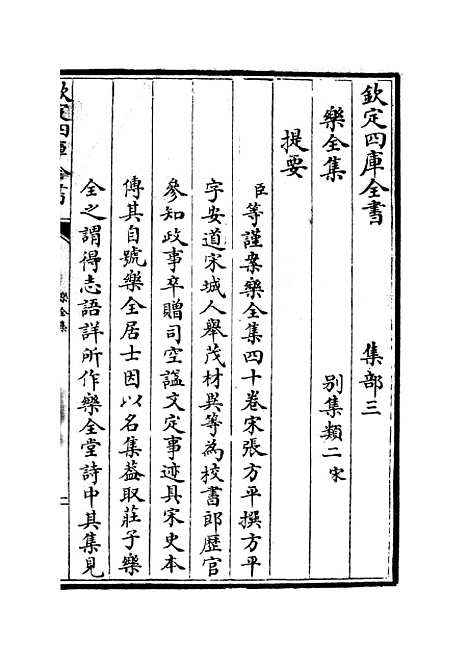 欽定四庫全書　集部三
樂全集　別集類二宋
提要
臣等謹案樂全集四十卷宋張方平撰方平
字安道宋城人舉茂材異等為校書郎歷官
參知政事卒贈司空諡文定事迹具宋史本
傳其自號樂全居士因以名集葢取莊子樂
全之謂得志語詳所作樂全堂詩中其集見
欽定四庫全書
樂全集
一